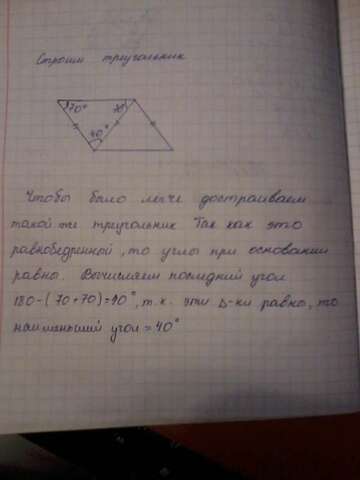 Строим треугольник
70° 70
40°
Чтобы было легче достраиваем
такой же треугольник Так как это
равнобедренной, то углы при основании
равны. Вычисляем последний угол
180-(70+70)=40°, т.к. эти Δ-ки равны, то
наименьший угол = 40°